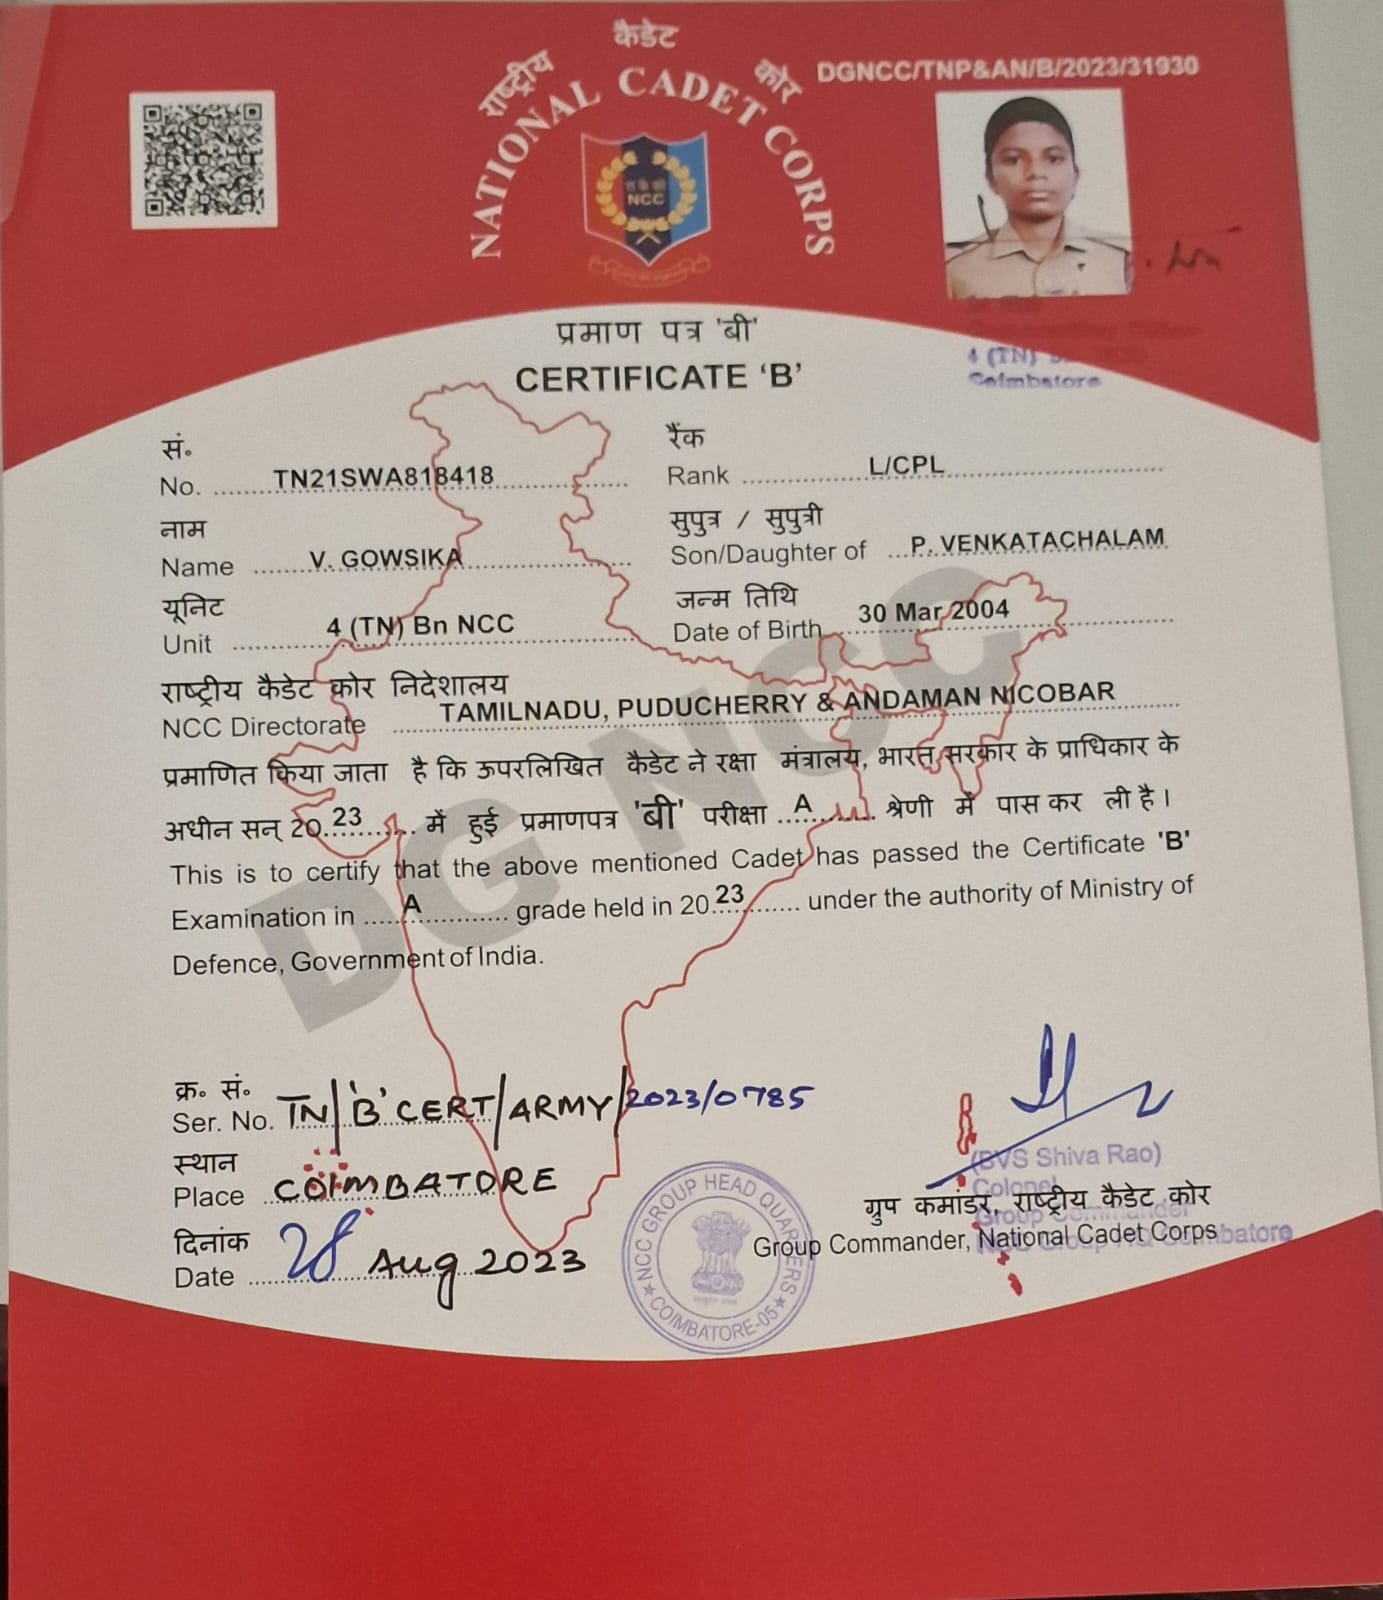 राष्ट्रीय कैडेट कोर
NATIONAL CADET CORPS
DGNCC/TNP&AN/B/2023/31930
रा कै को
NCC
4 (TN)
Coimbatore
प्रमाण पत्र 'बी'
CERTIFICATE 'B'
सं॰
No. TN21SWA818418
रैंक
Rank L/CPL
नाम
Name V. GOWSIKA
सुपुत्र / सुपुत्री
Son/Daughter of P. VENKATACHALAM
यूनिट
Unit 4 (TN) Bn NCC
जन्म तिथि
Date of Birth 30 Mar 2004
राष्ट्रीय कैडेट कोर निदेशालय
NCC Directorate TAMILNADU, PUDUCHERRY & ANDAMAN NICOBAR
प्रमाणित किया जाता है कि ऊपरलिखित कैडेट ने रक्षा मंत्रालय, भारत सरकार के प्राधिकार के
अधीन सन् 20 23 में हुई प्रमाणपत्र 'बी' परीक्षा A श्रेणी में पास कर ली है।
This is to certify that the above mentioned Cadet has passed the Certificate 'B'
Examination in A grade held in 20 23 under the authority of Ministry of
Defence, Government of India.
DG NCC
क्र॰ सं॰
Ser. No. TN/'B' CERT/ARMY/2023/0785
स्थान
Place COIMBATORE
दिनांक
Date 28 Aug 2023
NCC GROUP HEAD QUARTERS
COIMBATORE-05
(BVS Shiva Rao)
Colonel
Group Commander
ग्रुप कमांडर, राष्ट्रीय कैडेट कोर
Group Commander, National Cadet Corps